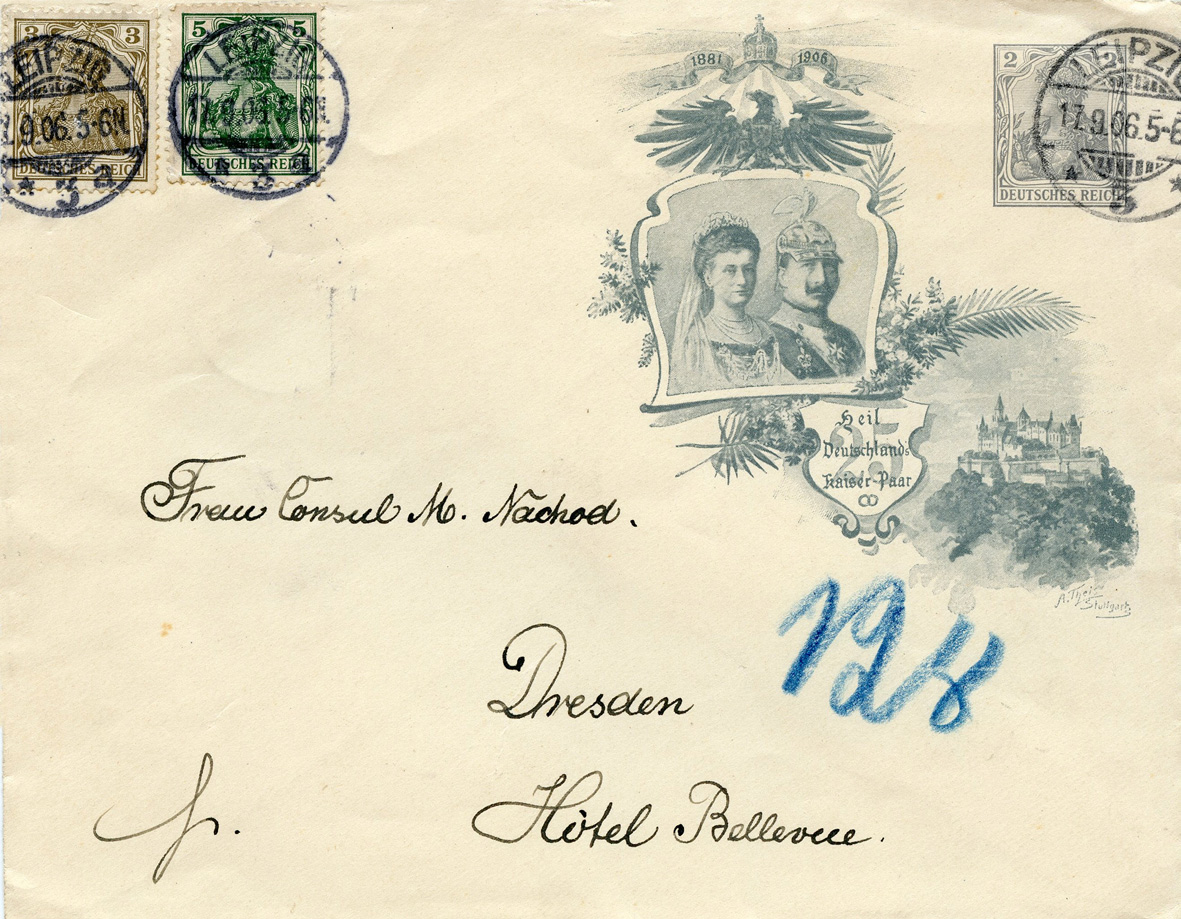 3 3
DEUTSCHES REICH
LEIPZIG
9.06.5-6N
* 3 a
5 5
DEUTSCHES REICH
LEIPZIG
17.9.06.5-6N
* 3 a
1881 1906
2
DEUTSCHES REICH
LEIPZIG
17.9.06.5-6
Heil
Deutschlands
Kaiser-Paar
25
Frau Consul M. Nachod.
128
Dresden
Hôtel Bellevue.
fr.
Stuttgart